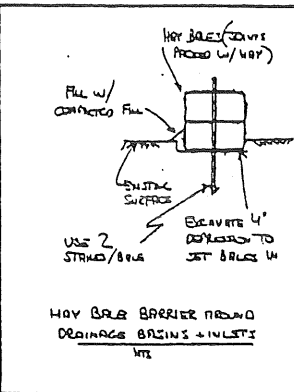 HAY BALES (JOINTS
PACKED W/ HAY)
FILL W/
COMPACTED FILL
EXISTING
SURFACE
USE 2
STAKES/BALE
EXCAVATE 4"
DEPRESSION TO
SET BALES IN
HAY BALE BARRIER AROUND
DRAINAGE BASINS + INLETS
NTS